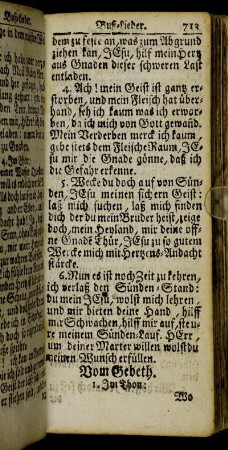 Buß-Lieder. 713
dem zu feste an, was zum Abgrund
ziehen kan, JEsu, hilf mein Hertz
aus Gnaden dieser schweren Last
entladen.
4. Ach! mein Geist ist gantz er-
storben, und mein Fleisch hat über-
hand, seh ich kaum was ich erwor-
ben, da ich mich von Gott gewand.
Mein Verderben merck ich kaum,
gibe stets dem Fleische Raum, JE-
su mir die Gnade gönne, daß ich
die Gefahr erkenne.
5. Wecke du doch auf von Sün-
den, JEsu meinen sichern Geist:
laß mich suchen, laß mich finden
dich der du mein Bruder heist, zeige
doch, mein Heyland, mir deine off-
ne Gnade Thür, JEsu zu so gutem
Wercke mich mit Hertzens-Andacht
stärcke.
6. Nun es ist noch Zeit zu kehren,
ich verlaß den Sünden-Stand:
du mein JEsu, wolst mich lehren
und mir bieten deine Hand, hilff
mir Schwachen, hilff mir auf, steu-
re meinem Sünden-Lauf. HErr,
um deiner Marter willen wolst du
meinen Wunsch erfüllen.
Vom Gebeth.
1. Im Thon:
Wo